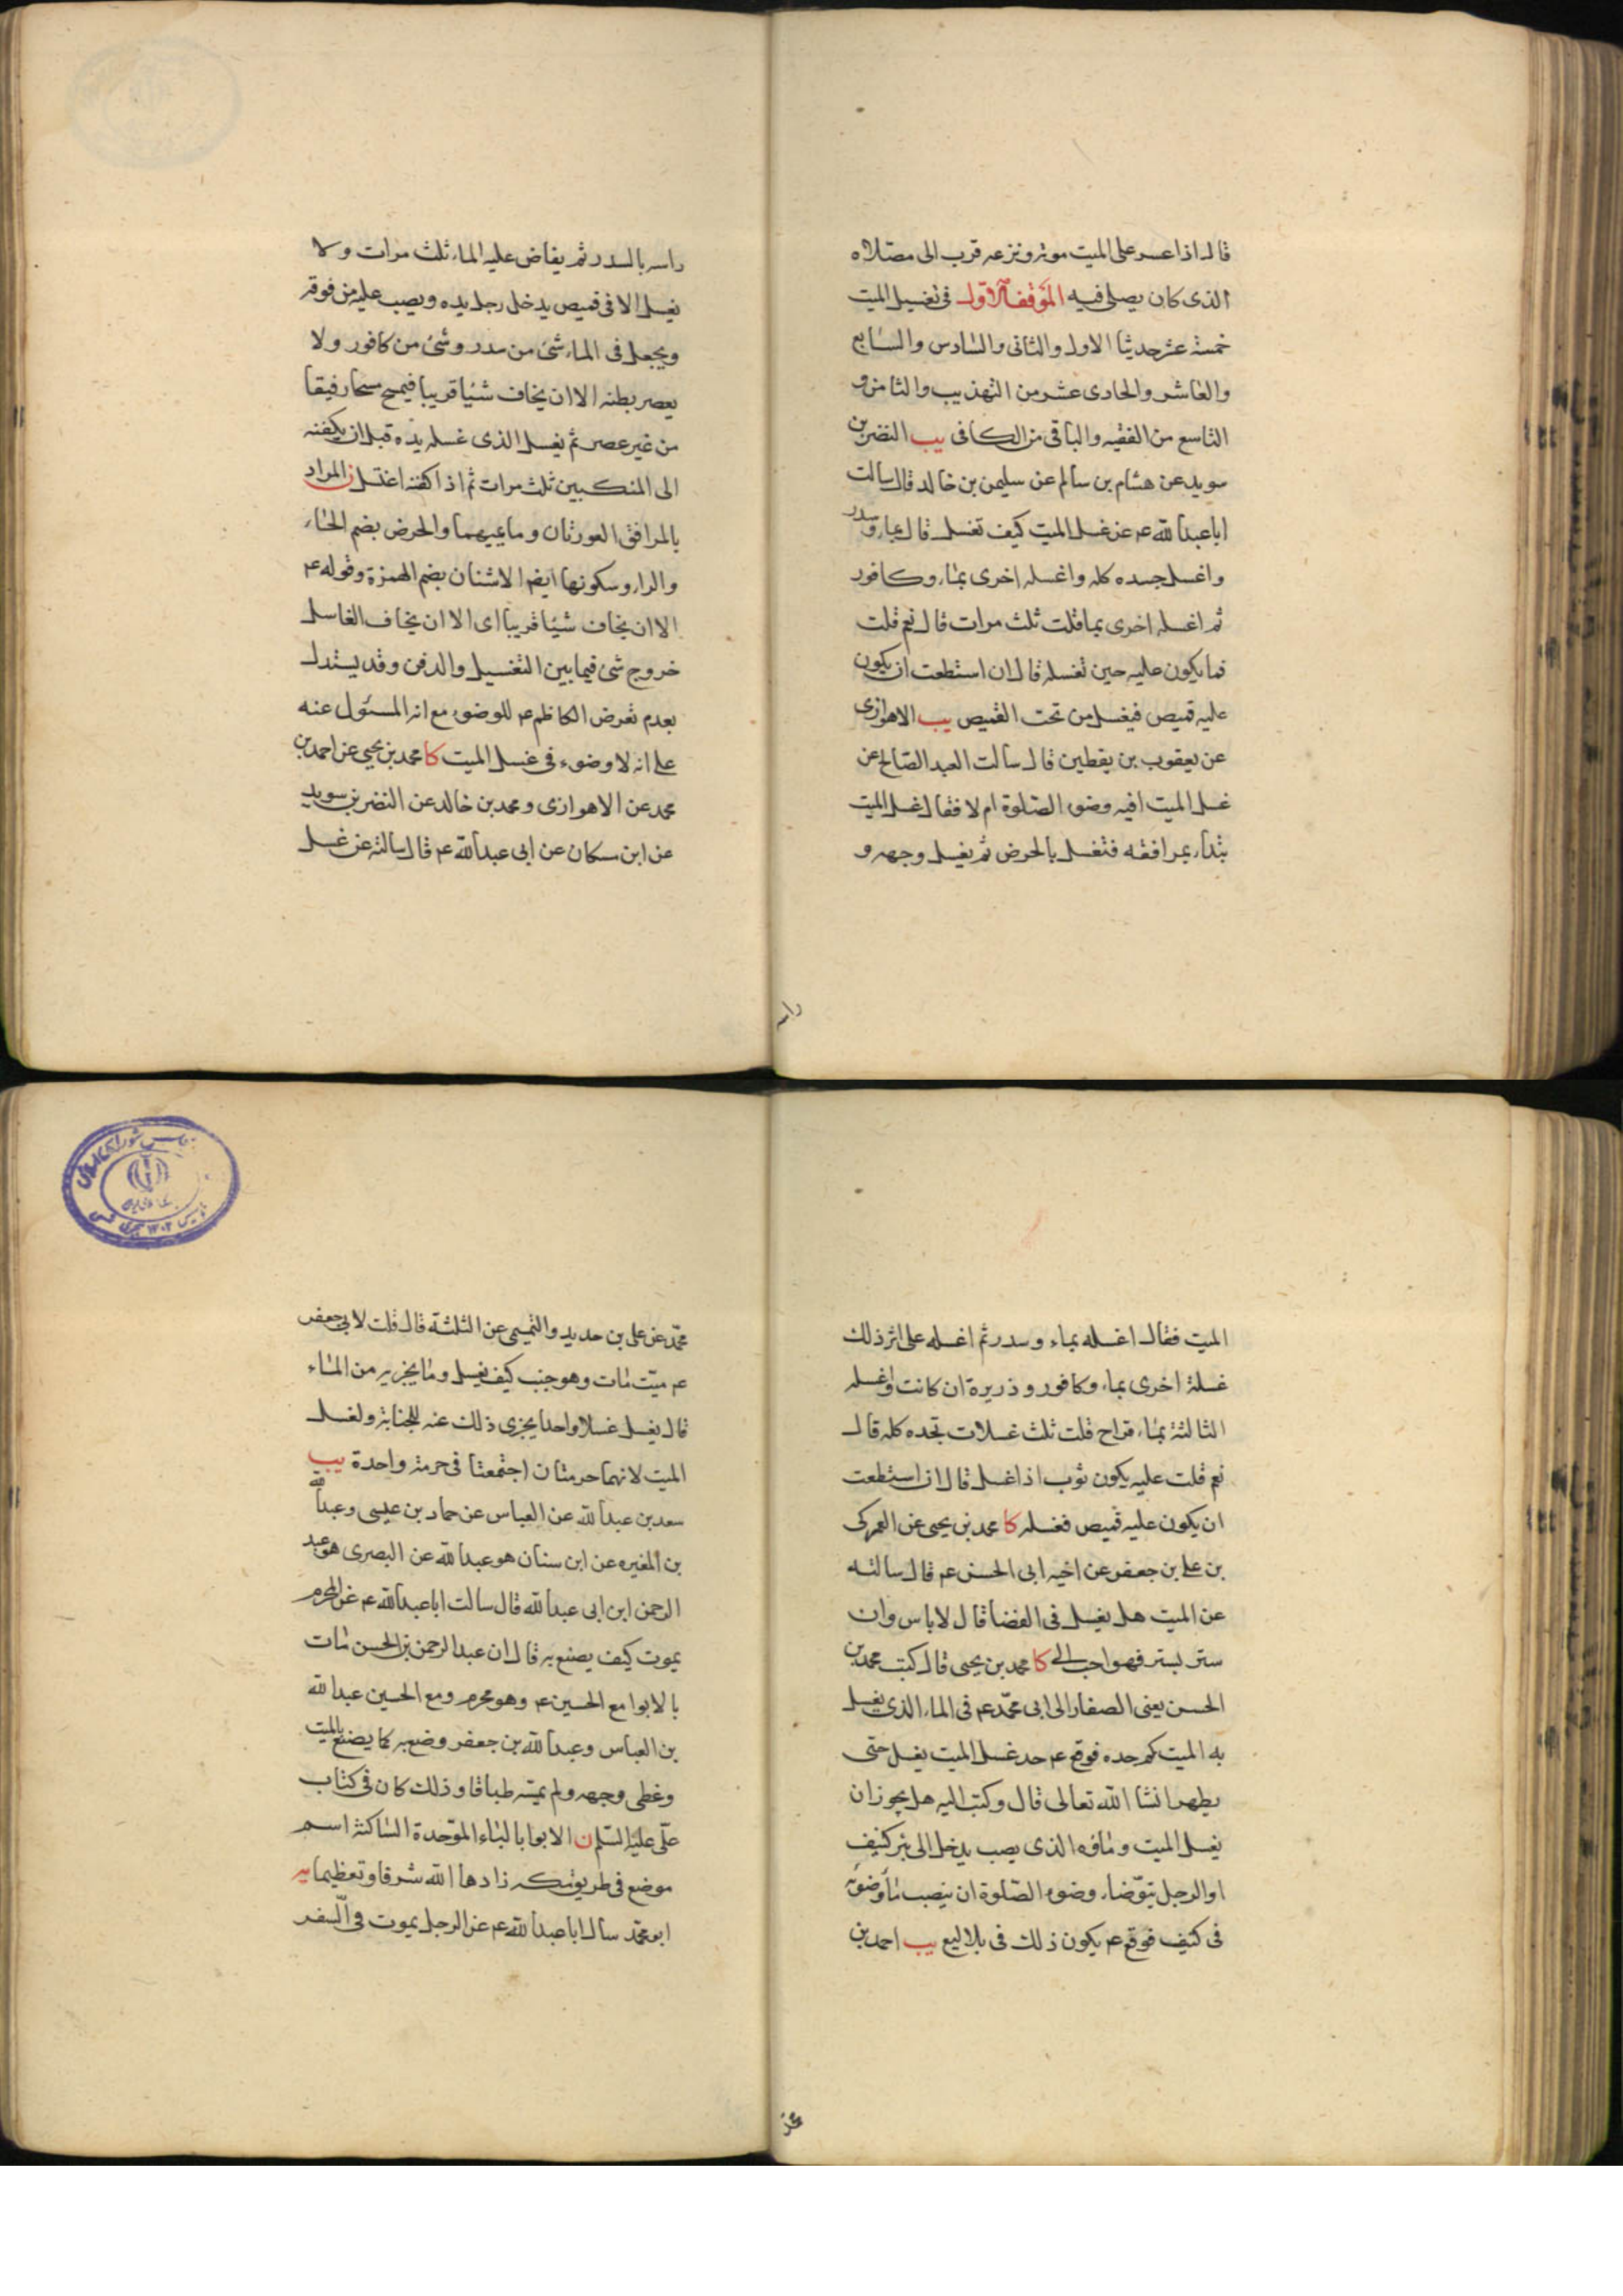 قال اذا عسر على الميت موته ونزعه قرب الى مصلاه
الذى كان يصلى فيه الموقف الاول فى تغسيل الميت
خمسة عشر حديثا الاول والثانى والسادس والسابع
والعاشر والحادى عشر من التهذيب والثامن و
التاسع من الفقيه والباقى من الكافى يب النضر بن
سويد عن هشام بن سالم عن سليمن بن خالد قال سالت
ابا عبد الله ع عن غسل الميت كيف تغسل قال بماء وسدر
واغسل جسده كله واغسله اخرى بماء وكافور
ثم اغسله اخرى بماء قلت ثلث مرات قال نعم قلت
فما يكون عليه حين تغسله قال ان استطعت ان يكون
عليه قميص فيغسل من تحت القميص يب الاهوازى
عن يعقوب بن يقطين قال سالت العبد الصالح عن
غسل الميت افيه وضوء الصلوة ام لا فقال غسل الميت
يبداء بمرافقه فتغسل بالحرض ثم يغسل وجهه و
راسه
راسه بالسدر ثم يفاض عليه الماء ثلث مرات ولا
يغسل الا فى قميص يدخل رجل يده ويصب عليه من فوقه
ويجعل فى الماء شئ من سدر وشئ من كافور ولا
يعصر بطنه الا ان يخاف شيئا قريبا فيمسح مسحا رفيقا
من غير عصر ثم يغسل الذى غسله يده قبل ان يكفنه
الى المنكبين ثلث مرات ثم اذا كفنه اغتسل ن المراد
بالمرافق العورتان وما يليهما والحرض بضم الحاء
والراء وسكونها ايضا الاشنان بضم الهمزة وقوله ع
الا ان يخاف شيئا قريبا اى الا ان يخاف الغاسل
خروج شئ فيما بين التغسيل والدفن وقد يستدل
بعدم تعرض الكاظم ع للوضوء مع انه المسئول عنه
على انه لا وضوء فى غسل الميت كا محمد بن يحيى عن احمد بن
محمد عن الاهوازى ومحمد بن خالد عن النضر بن سويد
عن ابن سكان عن ابى عبد الله ع قال سالته عن غسل
الميت فقال اغسله بماء وسدر ثم اغسله على اثر ذلك
غسلة اخرى بماء وكافور وذريرة ان كانت واغسله
الثالثة بماء قراح قلت ثلث غسلات تجده كله قال
نعم قلت عليه يكون ثوب اذا غسل قال ان استطعت
ان يكون عليه قميص فغسله كا محمد بن يحيى عن العمركى
بن على بن جعفر عن اخيه ابى الحسن ع قال سالته
عن الميت هل يغسل فى الفضا قال لا باس وان
ستر بستر فهو احب الى كا محمد بن يحيى قال كتب محمد بن
الحسن يعنى الصفار الى ابى محمد ع فى الماء الذى يغسل
به الميت كم حده فوقع ع حد غسل الميت يغسل حتى
يطهر انشا الله تعالى قال وكتب اليه هل يجوز ان
يغسل الميت وماؤه الذى يصب يدخل الى بئر كنيف
او الرجل يتوضاء وضوء الصلوة ان ينصب ماء وضوئه
فى كنيف فوقع ع يكون ذلك فى بلاليع يب احمد بن
محمد عن على بن حديد والتميمى عن الثلثة قال قلت لابى جعفر
ع ميت مات وهو جنب كيف يغسل وما يجزيه من الماء
قال يغسل غسلا واحدا يجزى ذلك عنه للجنابة ولغسل
الميت لانهما حرمتان اجتمعتا فى حرمة واحدة يب
سعد بن عبد الله عن العباس عن حماد بن عيسى وعبد الله
بن المغيره عن ابن سنان هو عبد الله عن البصرى هو عبد
الرحمن ابن ابى عبد الله قال سالت ابا عبد الله ع عن المحرم
يموت كيف يصنع به قال ان عبد الرحمن بن الحسن مات
بالابوا مع الحسين ع وهو محرم ومع الحسين عبد الله
بن العباس وعبد الله بن جعفر وضع به كما يصنع بالميت
وغطى وجهه ولم يمسه طبا قا وذلك كان فى كتاب
على عليه السلم ن الابوا بالباء الموحدة الساكنة اسم
موضع فى طريق مكه زادها الله شرفا وتعظيما يه
ابو محمد سال ابا عبد الله ع عن الرجل يموت فى السفر